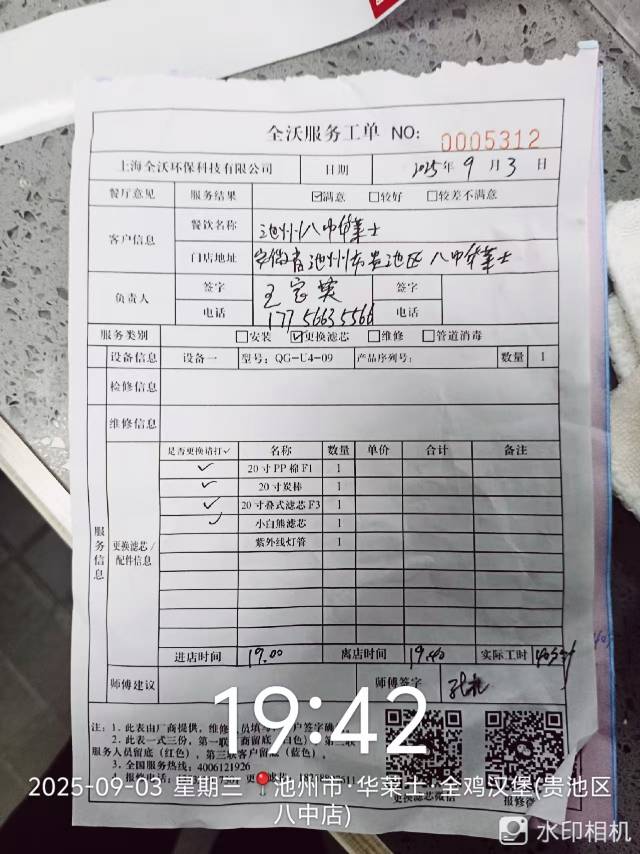 全沃服务工单 NO: 0005312
上海全沃环保科技有限公司 日期 2025年9月3日
餐厅意见 服务结果 ☑满意 □较好 □较差不满意
客户信息 餐饮名称 池州八中华莱士
门店地址 安徽省池州市贵池区八中华莱士
负责人 签字 签字
电话 17756635566 电话
服务类别 □安装 ☑更换滤芯 □维修 □管道消毒
设备信息 设备一 型号: QG-U4-09 产品序列号: 数量 1
检修信息
维修信息
服务信息
更换滤芯/配件信息
是否更换请打✓ 名称 数量 单价 合计 备注
✓ 20寸PP棉F1 1
✓ 20寸炭棒 1
✓ 20寸叠式滤芯F3 1
✓ 小白熊滤芯 1
紫外线灯管 1
进店时间 19.00 离店时间 19.40 实际工时 40分钟
师傅建议 师傅签字
注: 1. 此表由厂商提供, 维修
2. 此表一式三份, 第一联
服务人员留底(红色), 第三联客户留底(蓝色)。
3. 全国服务热线: 4006121926
更换滤芯微信 报修微
19:42
2025-09-03 星期三 池州市·华莱士·全鸡汉堡(贵池区
八中店)
水印相机